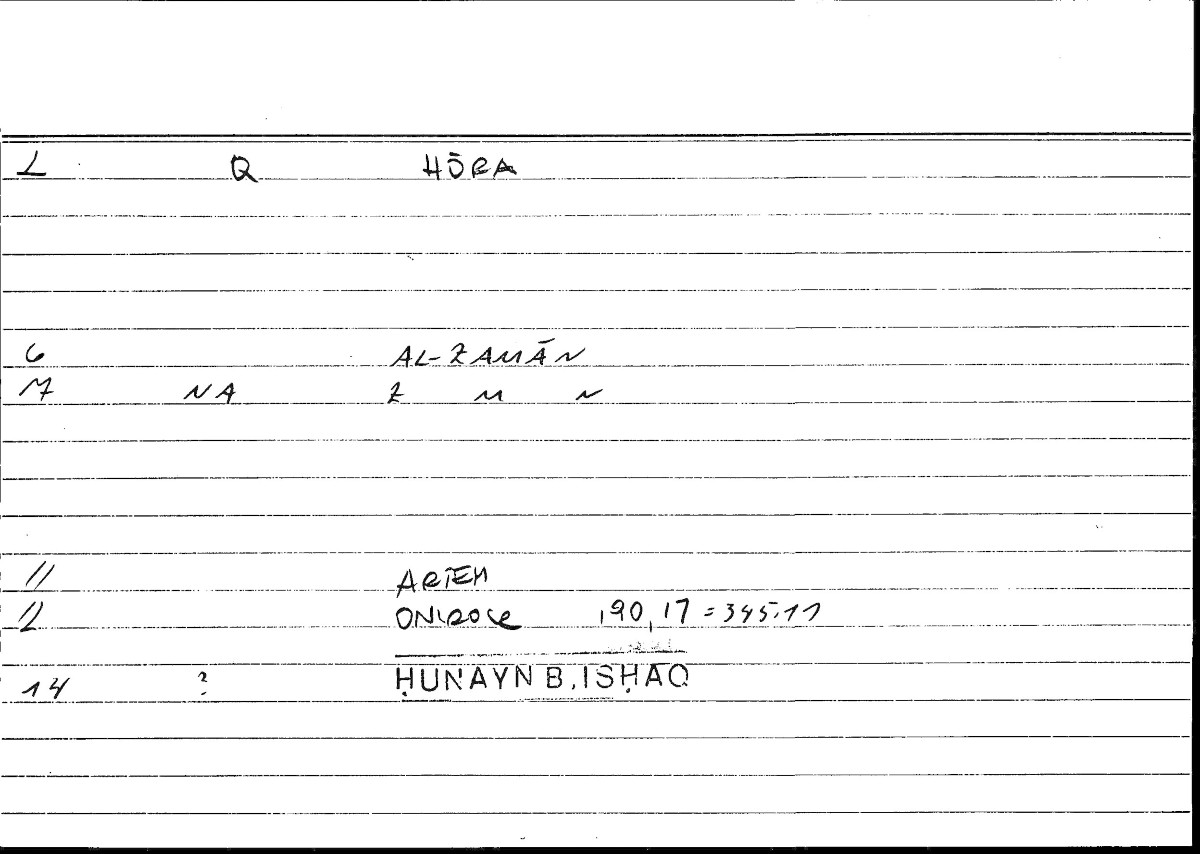 L Q HŌRA
6 AL-ZAMĀN
7 NA Z M N
11 ARTEM
12 ONIROCR 190,17 = 345,11
14 ? ḤUNAYN B. ISḤAQ